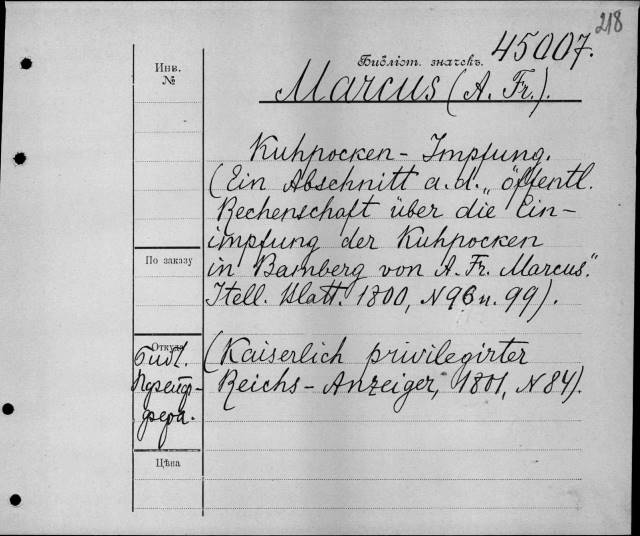 218
Библіот. значекъ. 45007.
Инв.
№
Marcus (A. Fr.).
Kuhpocken-Impfung.
(Ein Abschnitt a. d. „öffentl.
Rechenschaft über die Ein-
impfung der Kuhpocken
По заказу
in Bamberg von A. Fr. Marcus."
Itell. Blatt. 1800, N 96 u. 99).
Откуда
Библ.
(Kaiserlich privilegirter
Reichs-Anzeiger, 1801, N 84).
фера.
Цѣна